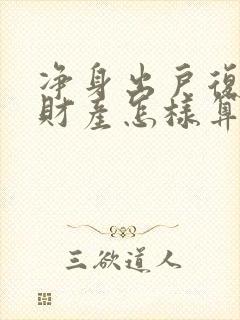 净身出戶復
財產怎樣算
三欲道人